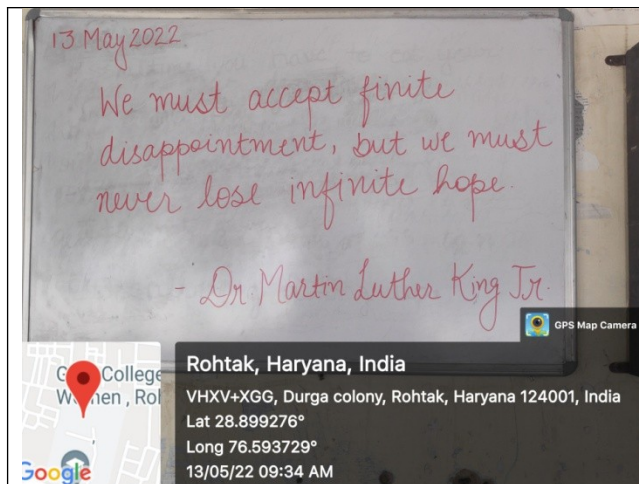 13 May 2022
We must accept finite
disappointment, but we must
never lose infinite hope.
- Dr. Martin Luther King Jr.
GPS Map Camera
College
Rohtak, Haryana, India
VHXV+XGG, Durga colony, Rohtak, Haryana 124001, India
Lat 28.899276°
Long 76.593729°
13/05/22 09:34 AM
Google